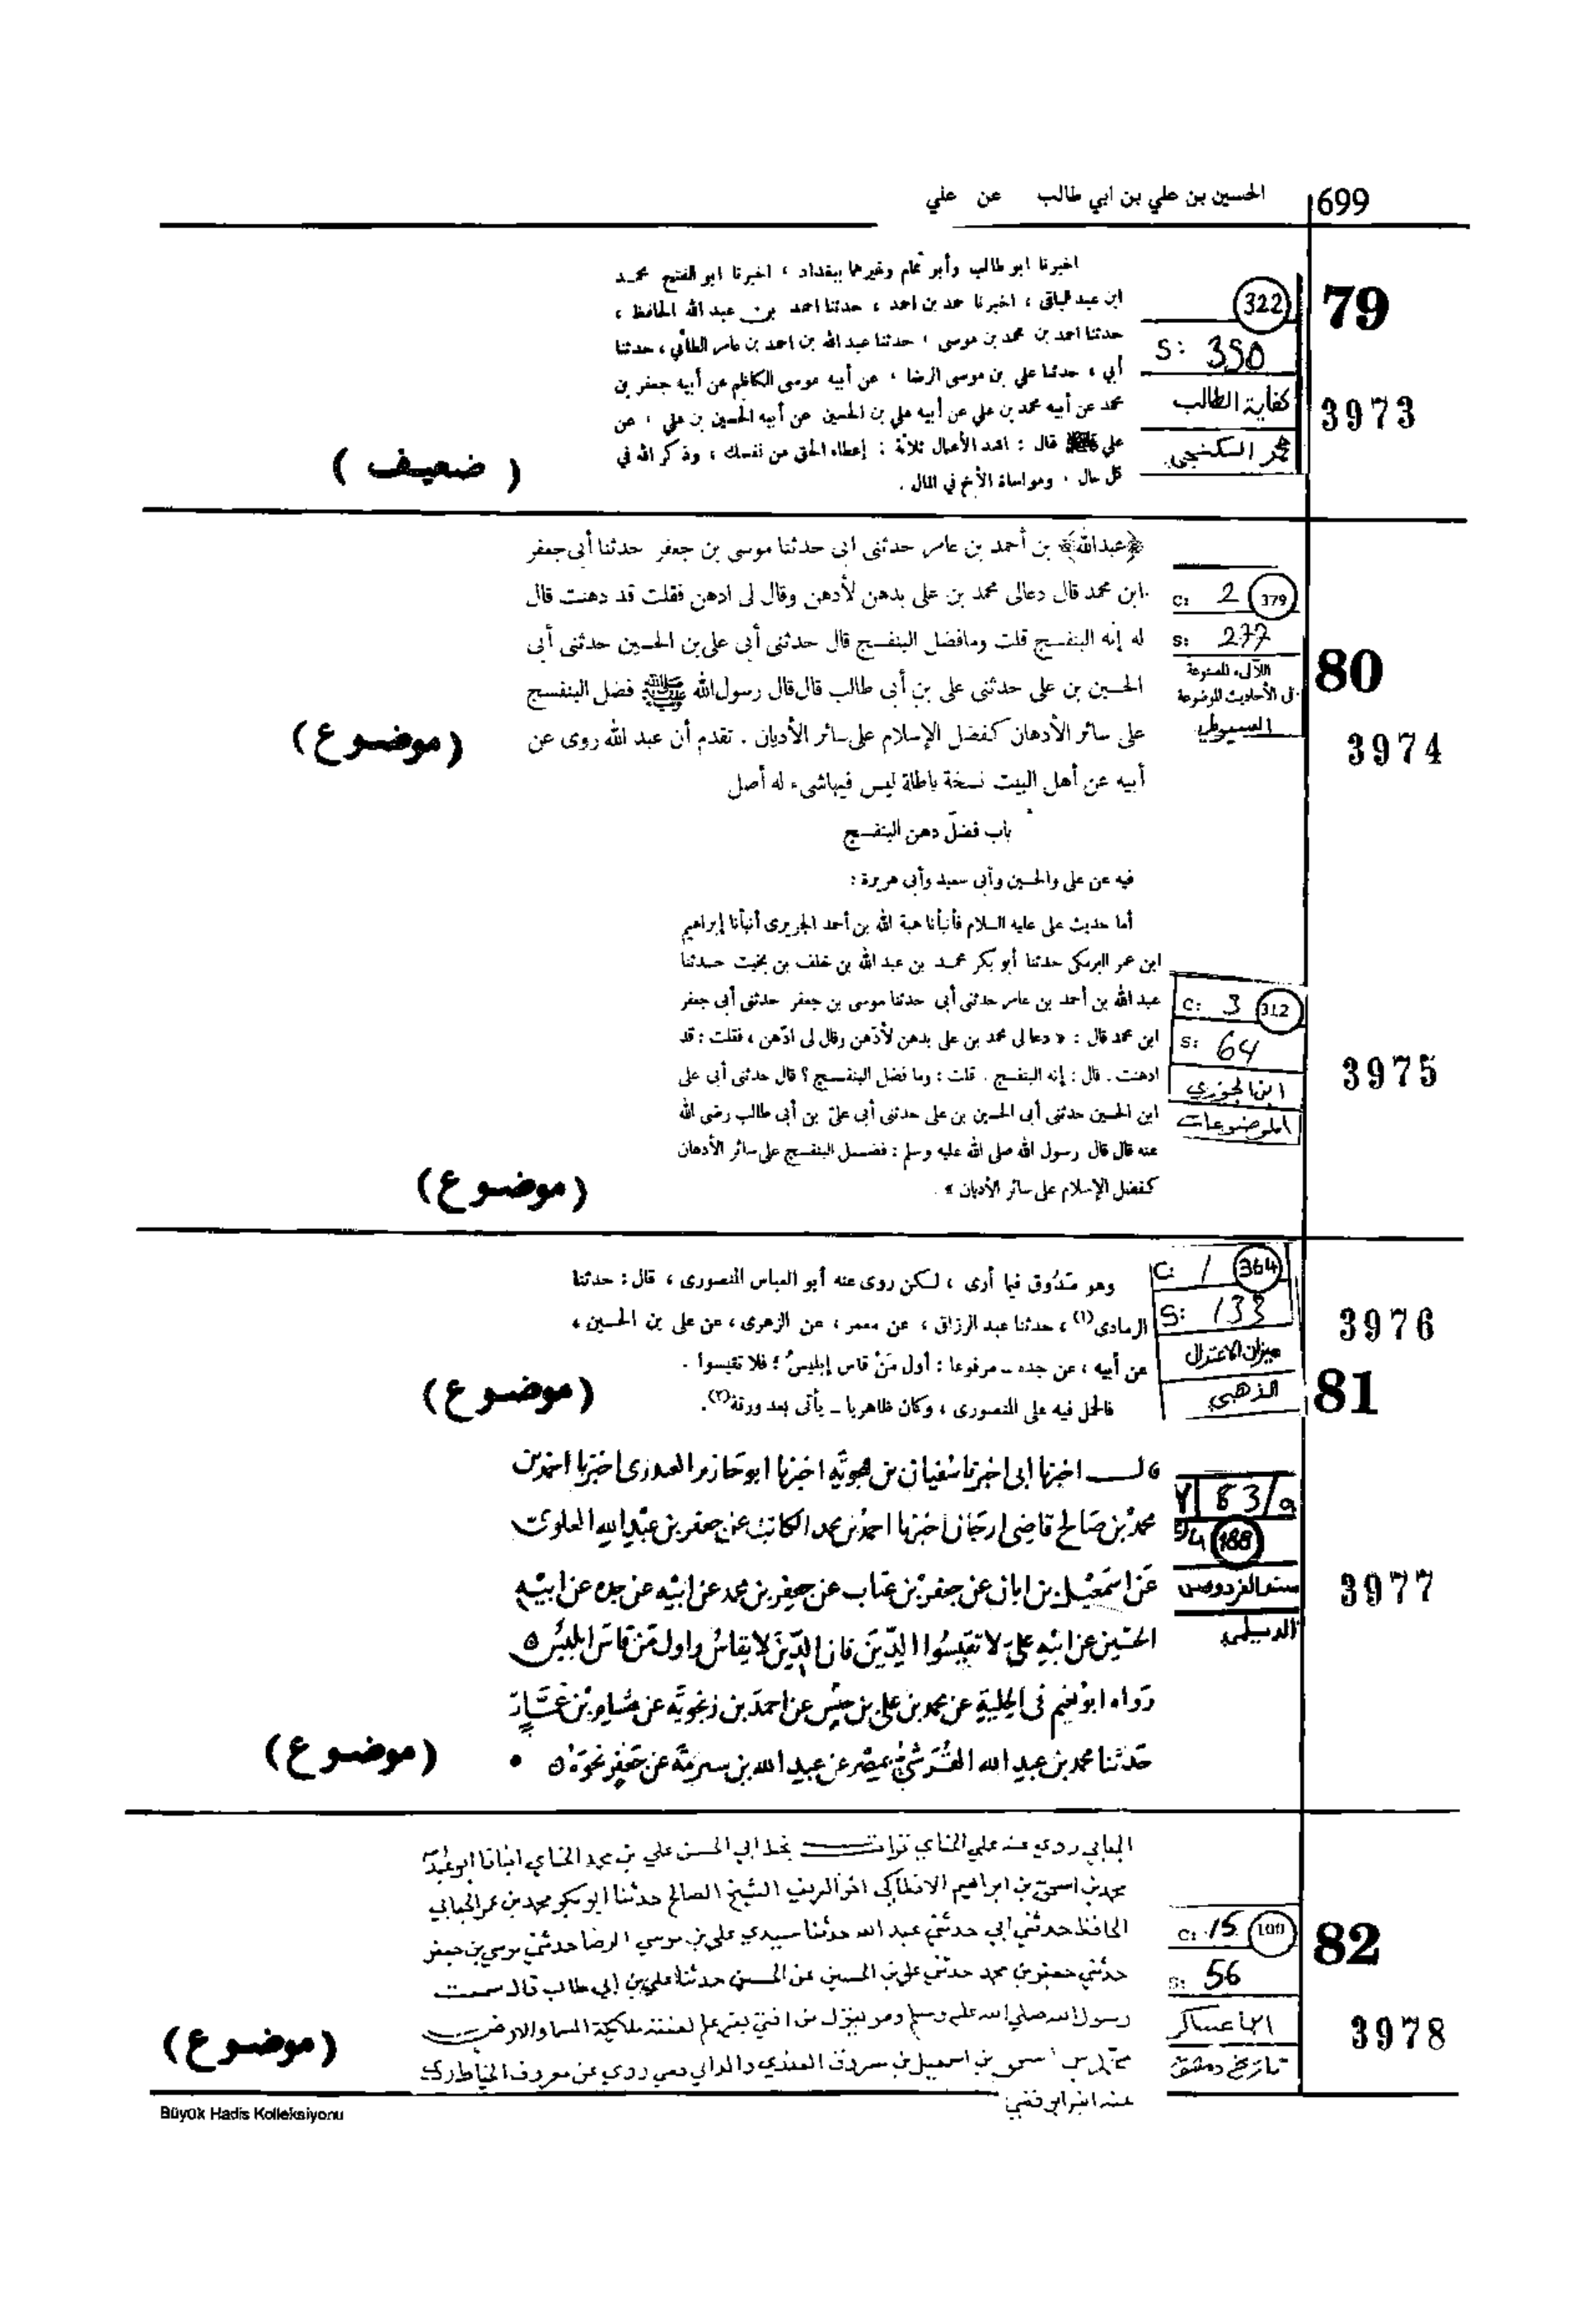 699
الحسين بن علي بن ابي طالب عن علي
79
322
S: 350
3973
كفاية الطالب
اخبرنا ابو طالب وأبو تمام وغيرهما ببغداد ، اخبرنا ابو الفتح محمد
ابن عبد الباقي ، اخبرنا حمد بن احمد ، حدثنا احمد بن عبد الله الحافظ ،
حدثنا احمد بن محمد بن موسى ، حدثنا عبد الله بن احمد بن عامر الطائي ، حدثنا
أبي ، حدثنا علي بن موسى الرضا ، عن أبيه موسى الكاظم عن أبيه جعفر بن
محمد عن أبيه محمد بن علي عن أبيه علي بن الحسين عن أبيه الحسين بن علي ، عن
علي قال : اشد الأعمال ثلاثة : إعطاء الحق من نفسك ، وذكر الله في
كل حال ، ومواساة الأخ في المال .
( ضعيف )
80
C: 2 379
S: 277
3974
اللآلىء المصنوعة
فى الأحاديث الموضوعة
السيوطي
﴿عبدالله﴾ بن أحمد بن عامر حدثنى ابى حدثنا موسى بن جعفر حدثنا أبى جعفر
ابن محمد قال دعالى محمد بن على بدهن لأدهن وقال لى ادهن فقلت قد دهنت قال
له إنه البنفسج قلت ومافضل البنفسج قال حدثنى أبى على بن الحسين حدثنى أبى
الحسين بن على حدثنى على بن أبى طالب قال قال رسول الله ﷺ فضل البنفسج
على سائر الأدهان كفضل الإسلام على سائر الأديان . تقدم أن عبد الله روى عن
أبيه عن أهل البيت نسخة باطلة ليس فيها شىء له أصل
(موضوع)
باب فضل دهن البنفسج
فيه عن على والحسين وأبى سعيد وأبى هريرة :
أما حديث على عليه السلام فأنبأنا هبة الله بن أحمد الجريرى أنبأنا إبراهيم
ابن عمر البرمكى حدثنا أبو بكر محمد بن عبد الله بن خلف بن بخيت حدثنا
عبد الله بن أحمد بن عامر حدثنى أبى حدثنا موسى بن جعفر حدثنى أبى جعفر
ابن محمد قال : « دعا لى محمد بن على بدهن لأدّهن وقال لى ادّهن ، فقلت : قد
ادهنت . قال : إنه البنفسج . قلت : وما فضل البنفسج ؟ قال حدثنى أبى على
ابن الحسين حدثنى أبى الحسين بن على حدثنى أبى علىّ بن أبى طالب رضى الله
عنه قال قال رسول الله صلى الله عليه وسلم : فضل البنفسج على سائر الأدهان
كفضل الإسلام على سائر الأديان » .
(موضوع)
C: 3 312
S: 64
ابن الجوزي
الموضوعات
3975
C: 1 364
S: 133
ميزان الاعتدال
الذهبي
3976
81
وهو صَدُوق فيما أرى ، لكن روى عنه أبو العباس المنصورى ، قال : حدثنا
الرمادى(١) ، حدثنا عبد الرزاق ، عن معمر ، عن الزهرى ، عن على بن الحسين ،
عن أبيه ، عن جده – مرفوعا : أول مَنْ قاس إبليسُ ؛ فلا تقيسوا .
فالحمل فيه على المنصورى ، وكان ظاهريا – يأتى بعد ورقة(٢).
(موضوع)
83/a
188
مسند الفردوس
الديلمي
3977
قال اخبرنا ابى اخبرنا سفيان بن اخبرنا ابو حازم العبدوى اخبرنا احمد بن
محمد بن صالح قاضى ارجان اخبرنا احمد بن محمد الكاتب عن جعفر بن عبد الله العلوى
عن اسمعيل بن ابان عن جعفر بن عتاب عن جعفر بن محمد عن ابيه عن جده عن ابيه
الحسين عن ابيه على لا تقيسوا الدين فان الدين لا يقاس واول من قاس ابليس
رواه ابو نعيم فى الحلية عن محمد بن على بن حبيش عن احمد بن زنجويه عن هشام بن عمار
حدثنا محمد بن عبد الله القرشى بمصر عن عبد الله بن عن جعفر نحوه
(موضوع)
82
C: 15 100
S: 56
ابن عساكر
تاريخ دمشق
3978
بخط ابي الحسن علي بن محمد الحنائي انبانا ابو
محمد بن اسحق بن ابراهيم الانطاكي الشيخ الصالح حدثنا ابو بكر محمد بن عمر الجعابي
الحافظ حدثني ابي حدثني عبد الله حدثنا سيدي علي بن موسي الرضا حدثني موسي بن جعفر
حدثني جعفر بن محمد حدثني علي بن الحسين عن الحسين حدثنا علي بن ابي طالب قال سمعت
رسول الله صلي الله عليه وسلم وهو يقول من افتي بغير علم لعنته ملائكة السماء والارض
بن اسمعيل بن روي عن معروف الخياط
(موضوع)
Büyük Hadis Kolleksiyonu